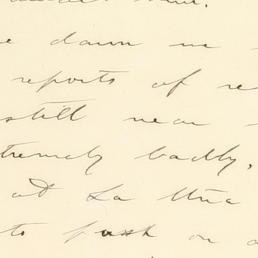 down
reports of re
still near
tremely badly.
at La Uña
to push on a